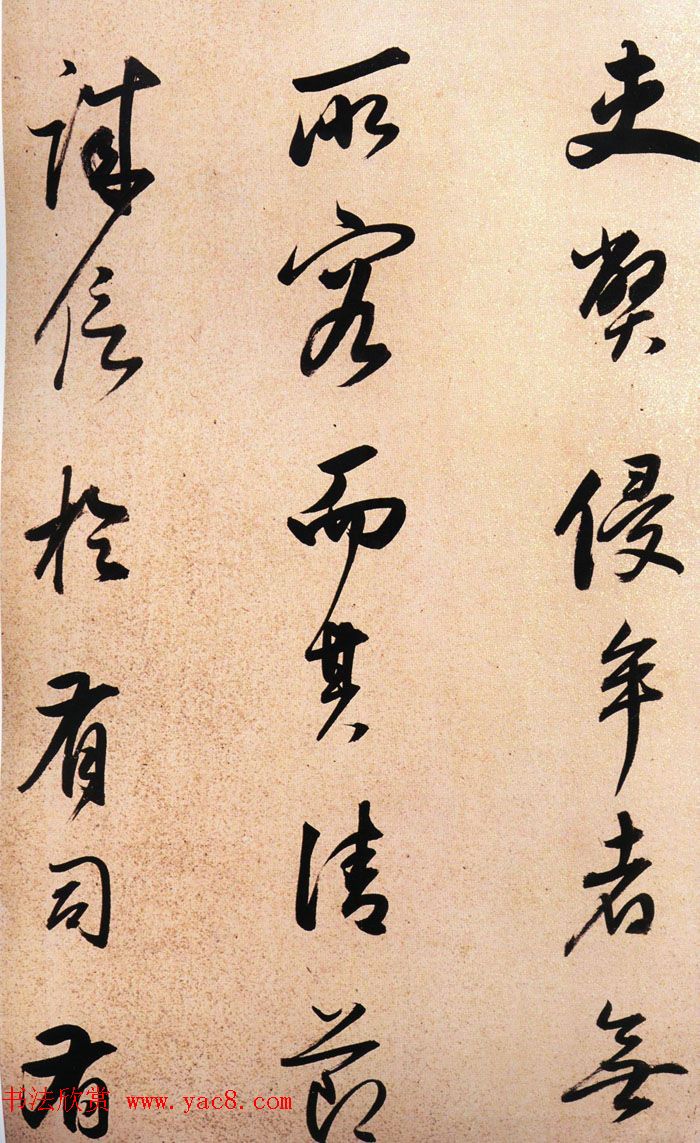 吏弊侵牟者無
所容而其清節
誠信於有司有
书法欣赏 www.yac8.com